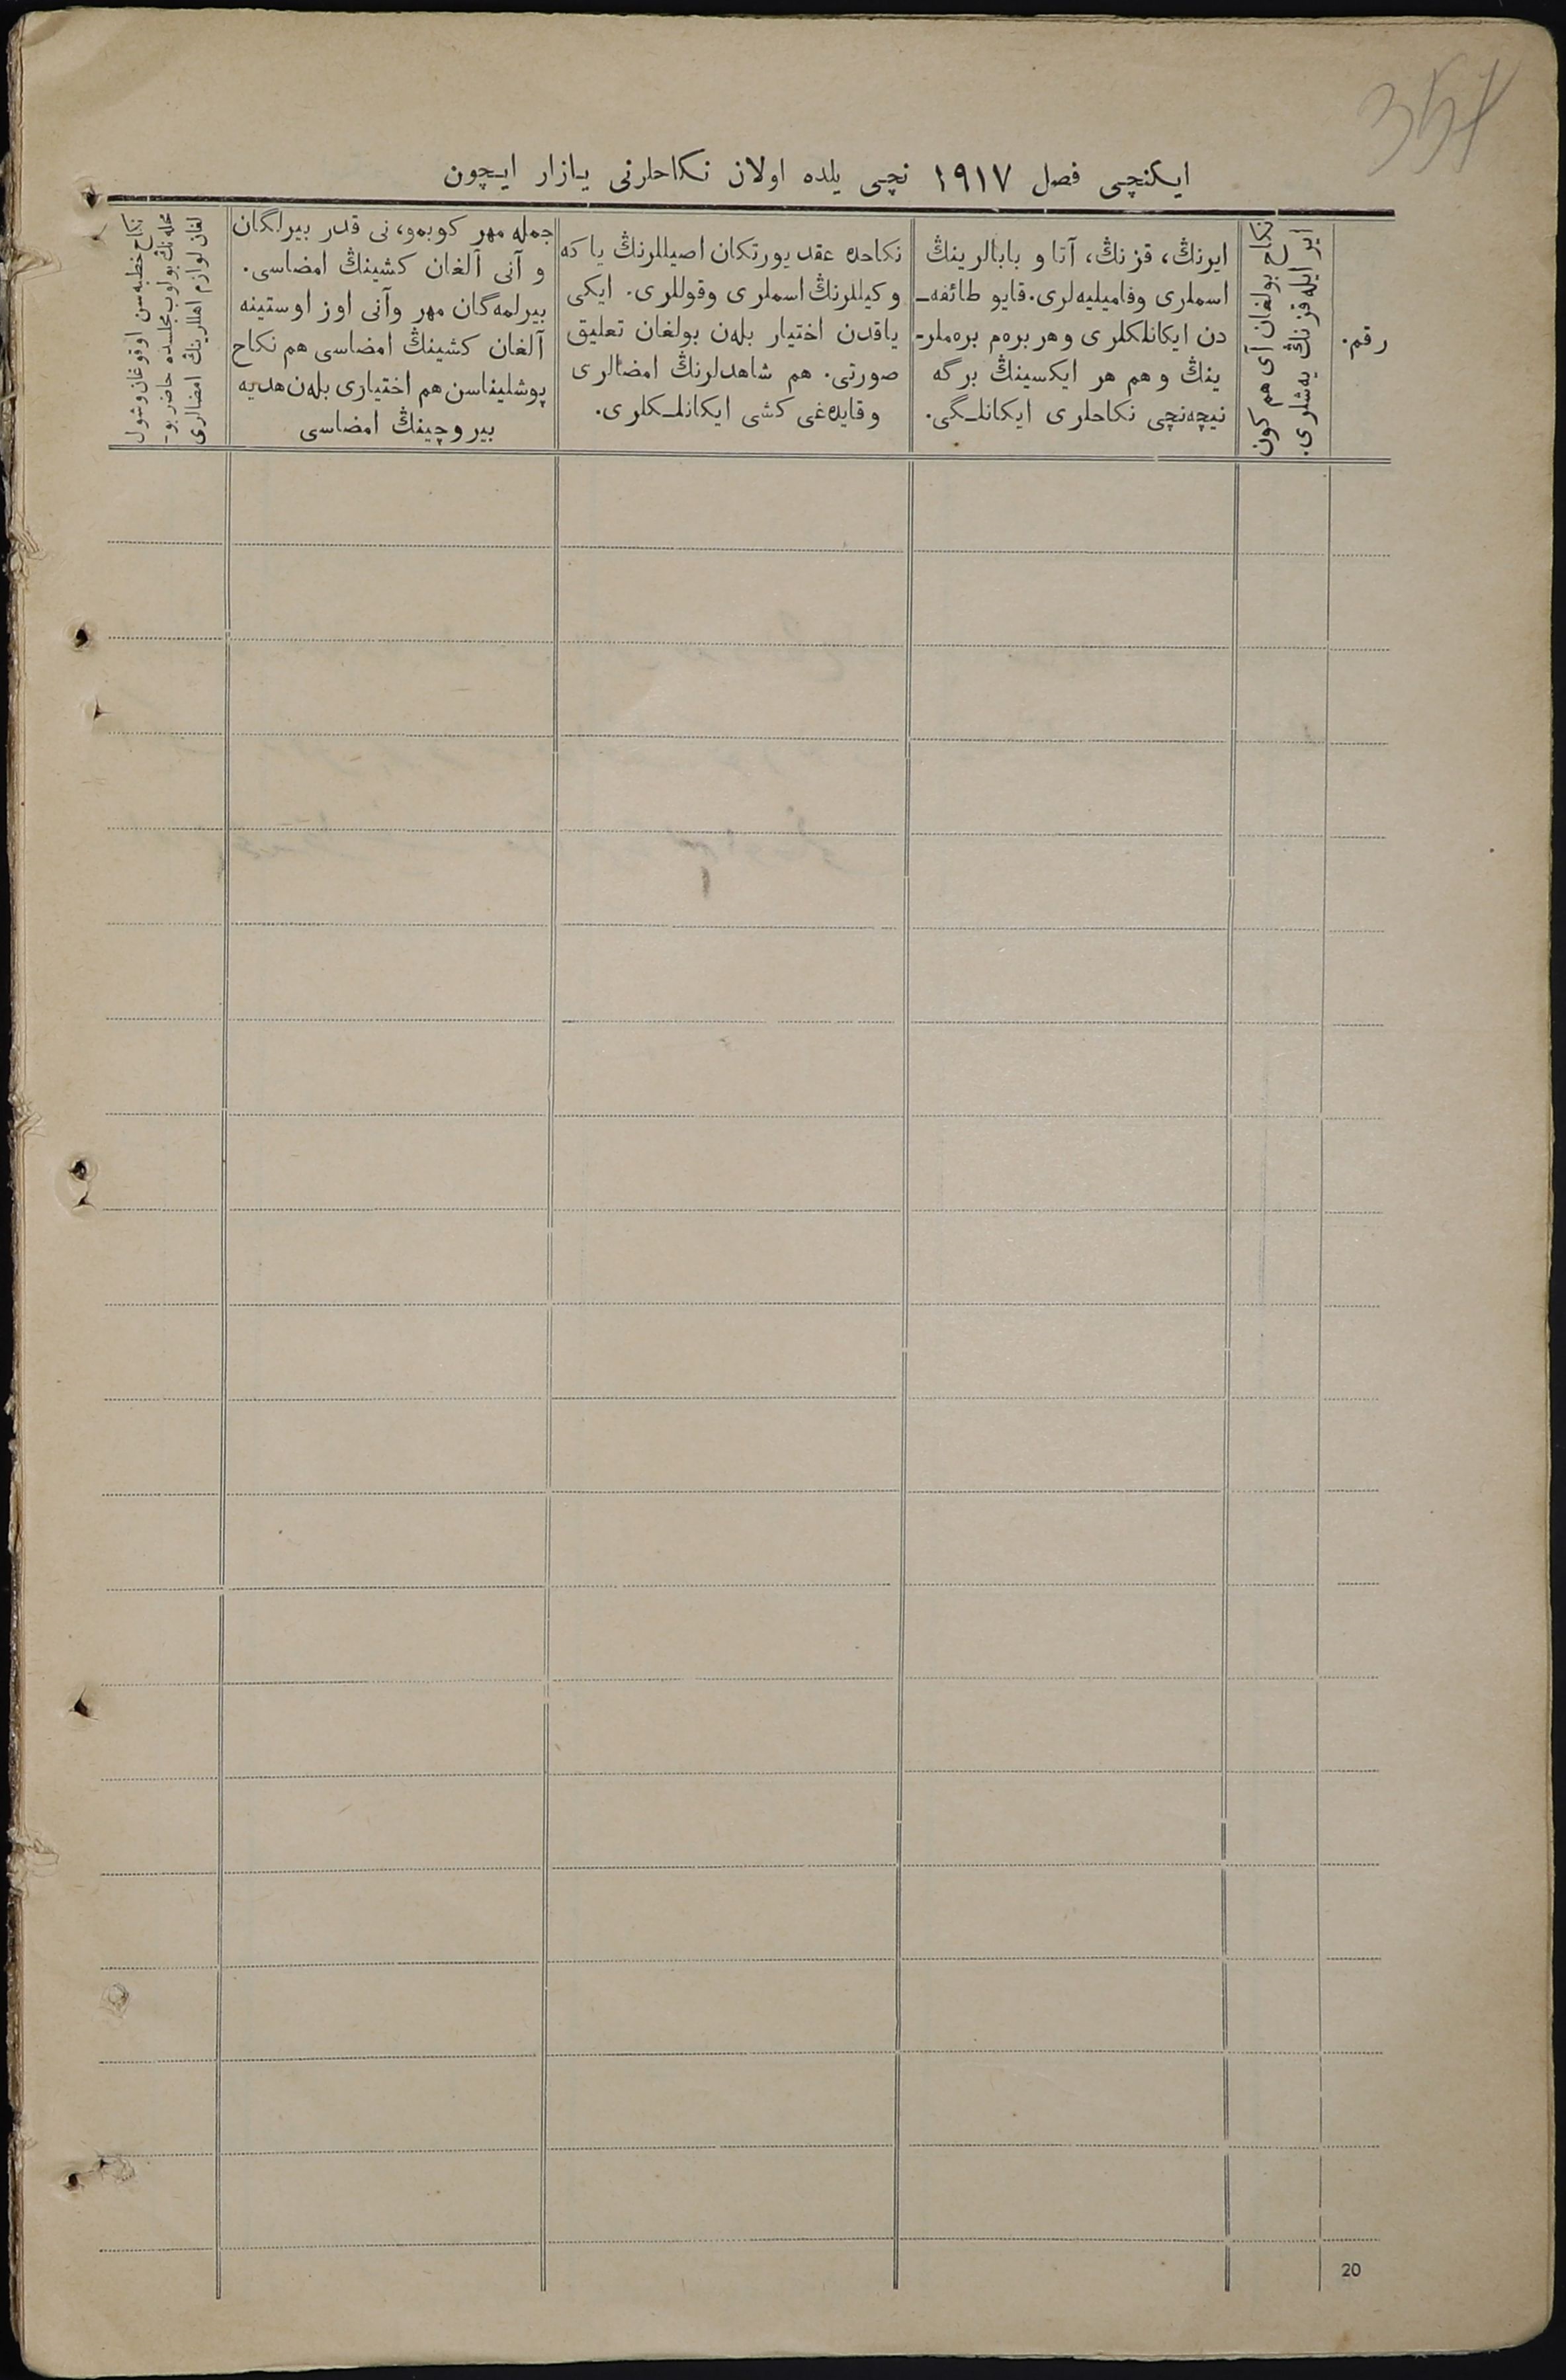 ایکنچی فصل ١٩١٧ نچی یلده اولان نکاحلرنی یازار ایچون
رقم.
نکاح بولغان آی هم کون
ایر ایله قزنڭ یه‌شلری.
ایرنڭ، قزنڭ، آتا و بابالرینڭ
اسملری وفامیلیه‌لری. قایو طائفه‌ـ
دن ایکانلکلری وهر بره‌م بره‌ملرـ
ینڭ وهم هر ایکسینڭ برگه
نیچه‌نچی نکاحلری ایکانلـگی.
نکاحده عقد یورتکان اصیللرنڭ یاکه
وکیللرنڭ اسملری وقوللری. ایکی
یاقدن اختیار بله‌ن بولغان تعلیق
صورتی. هم شاهدلرنڭ امضالری
وقایده‌غی کشی ایکانلـکلری.
جمله مهر کوبمو، نی قدر بیرلگان
و آنی آلغان کشینڭ امضاسی.
بیرلمه‌گان مهر وآنی اوز اوستینه
آلغان کشینڭ امضاسی هم نکاح
پوشلیناسن هم اختیاری بله‌ن هدیه
بیروچینڭ امضاسی
نکاح خطبه‌سن اوقوغان وشول
محله‌نڭ بولوب مجلسده حاضر بوـ
لغان لوازم اهللرینڭ امضالری
20